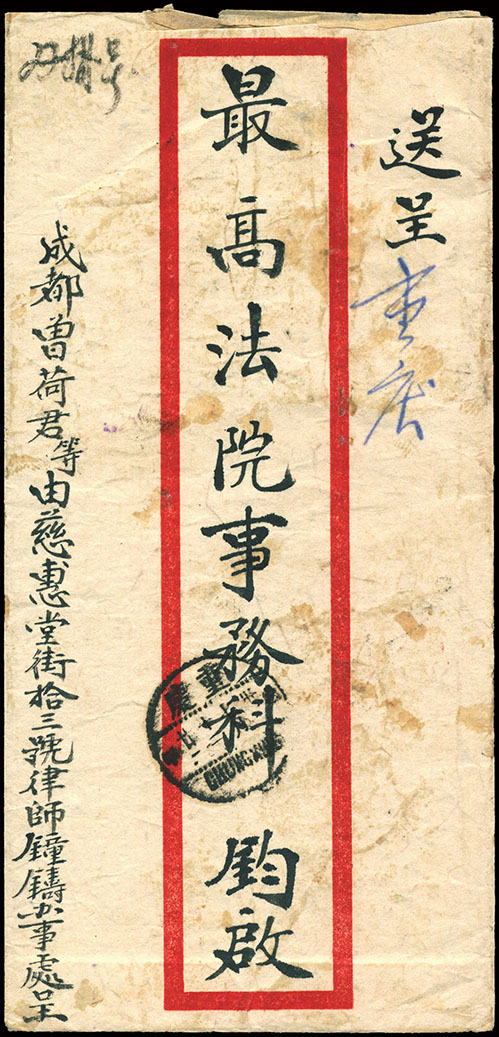 送呈
重庆
最高法院事務科 鈞啟
成都曾荷君等由慈惠堂街拾三號律師鐘鑄办事處呈
重慶
CHUNGKING